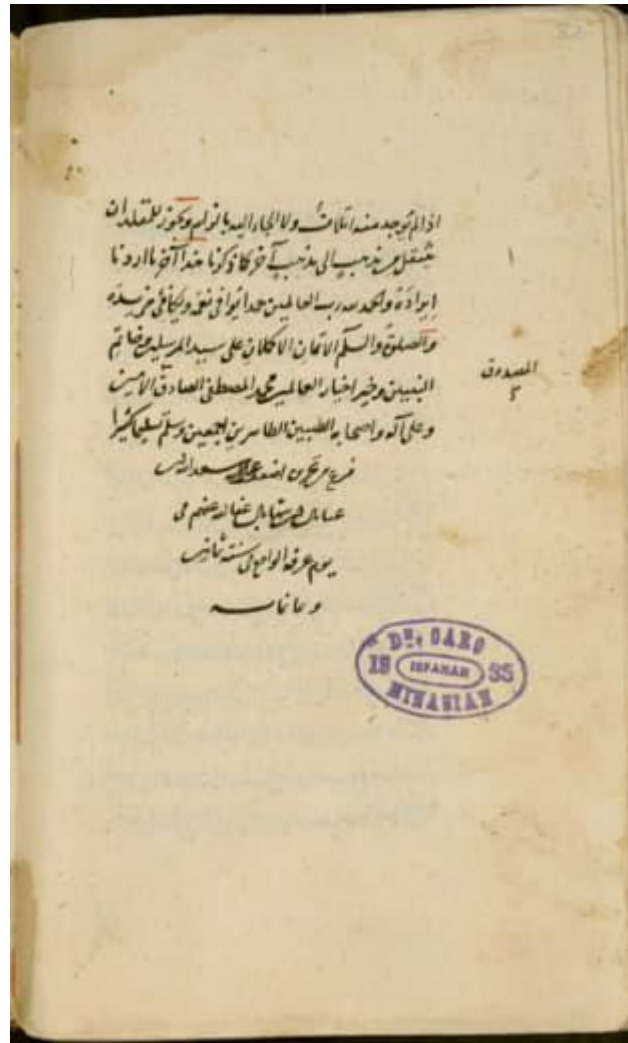 اذا لم توجد منه اتلاف ولا الجاء اليه بانواعه ويجوز للمقلد ان
ينتقل من مذهب الى مذهب آخر كما ذكرنا هذا آخر ما اردنا
ايراده والحمد لله رب العالمين حمدا يوافى نعمه ويكافئ مزيده
والصلوة والسلم الاتمان الاكملان على سيد المرسلين وخاتم
النبيين وخير اخيار العالمين محمد المصطفى الصادق الامين
وعلى آله واصحابه الطيبين الطاهرين اجمعين وسلم تسليما كثيرا
المصدوق
عفا الله عنهم
يوم عرفة الواقع فى سنة ثمانين
وثمانمائة
Dr. CARO
19 ISFAHAN 35
MINASIAN